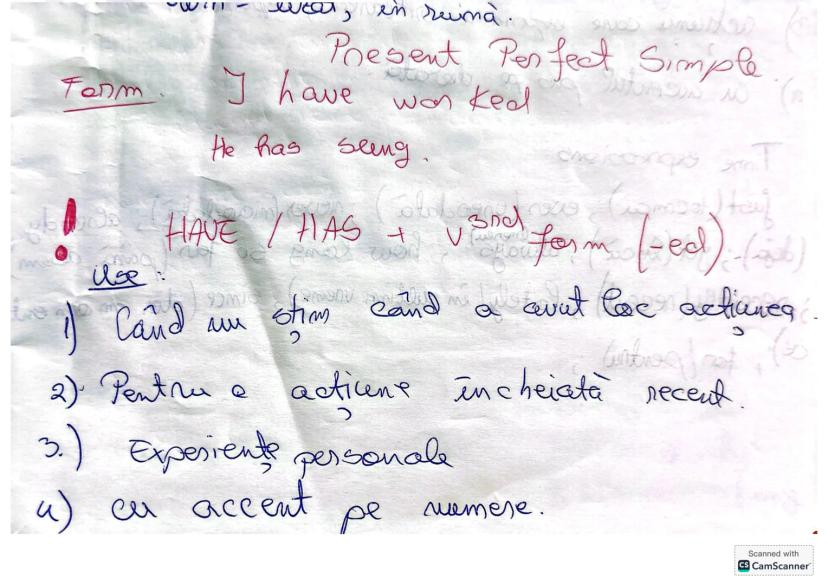 în ruină.
Present Perfect Simple
Form. I have worked
He has seung.
! HAVE / HAS + V 3nd form (-ed)
Use:
1) Când nu știm când a avut loc acțiunea.
2) Pentru o acțiune încheiată recent.
3.) Experiențe personale
4) cu accent pe numere.
Scanned with
CS CamScanner